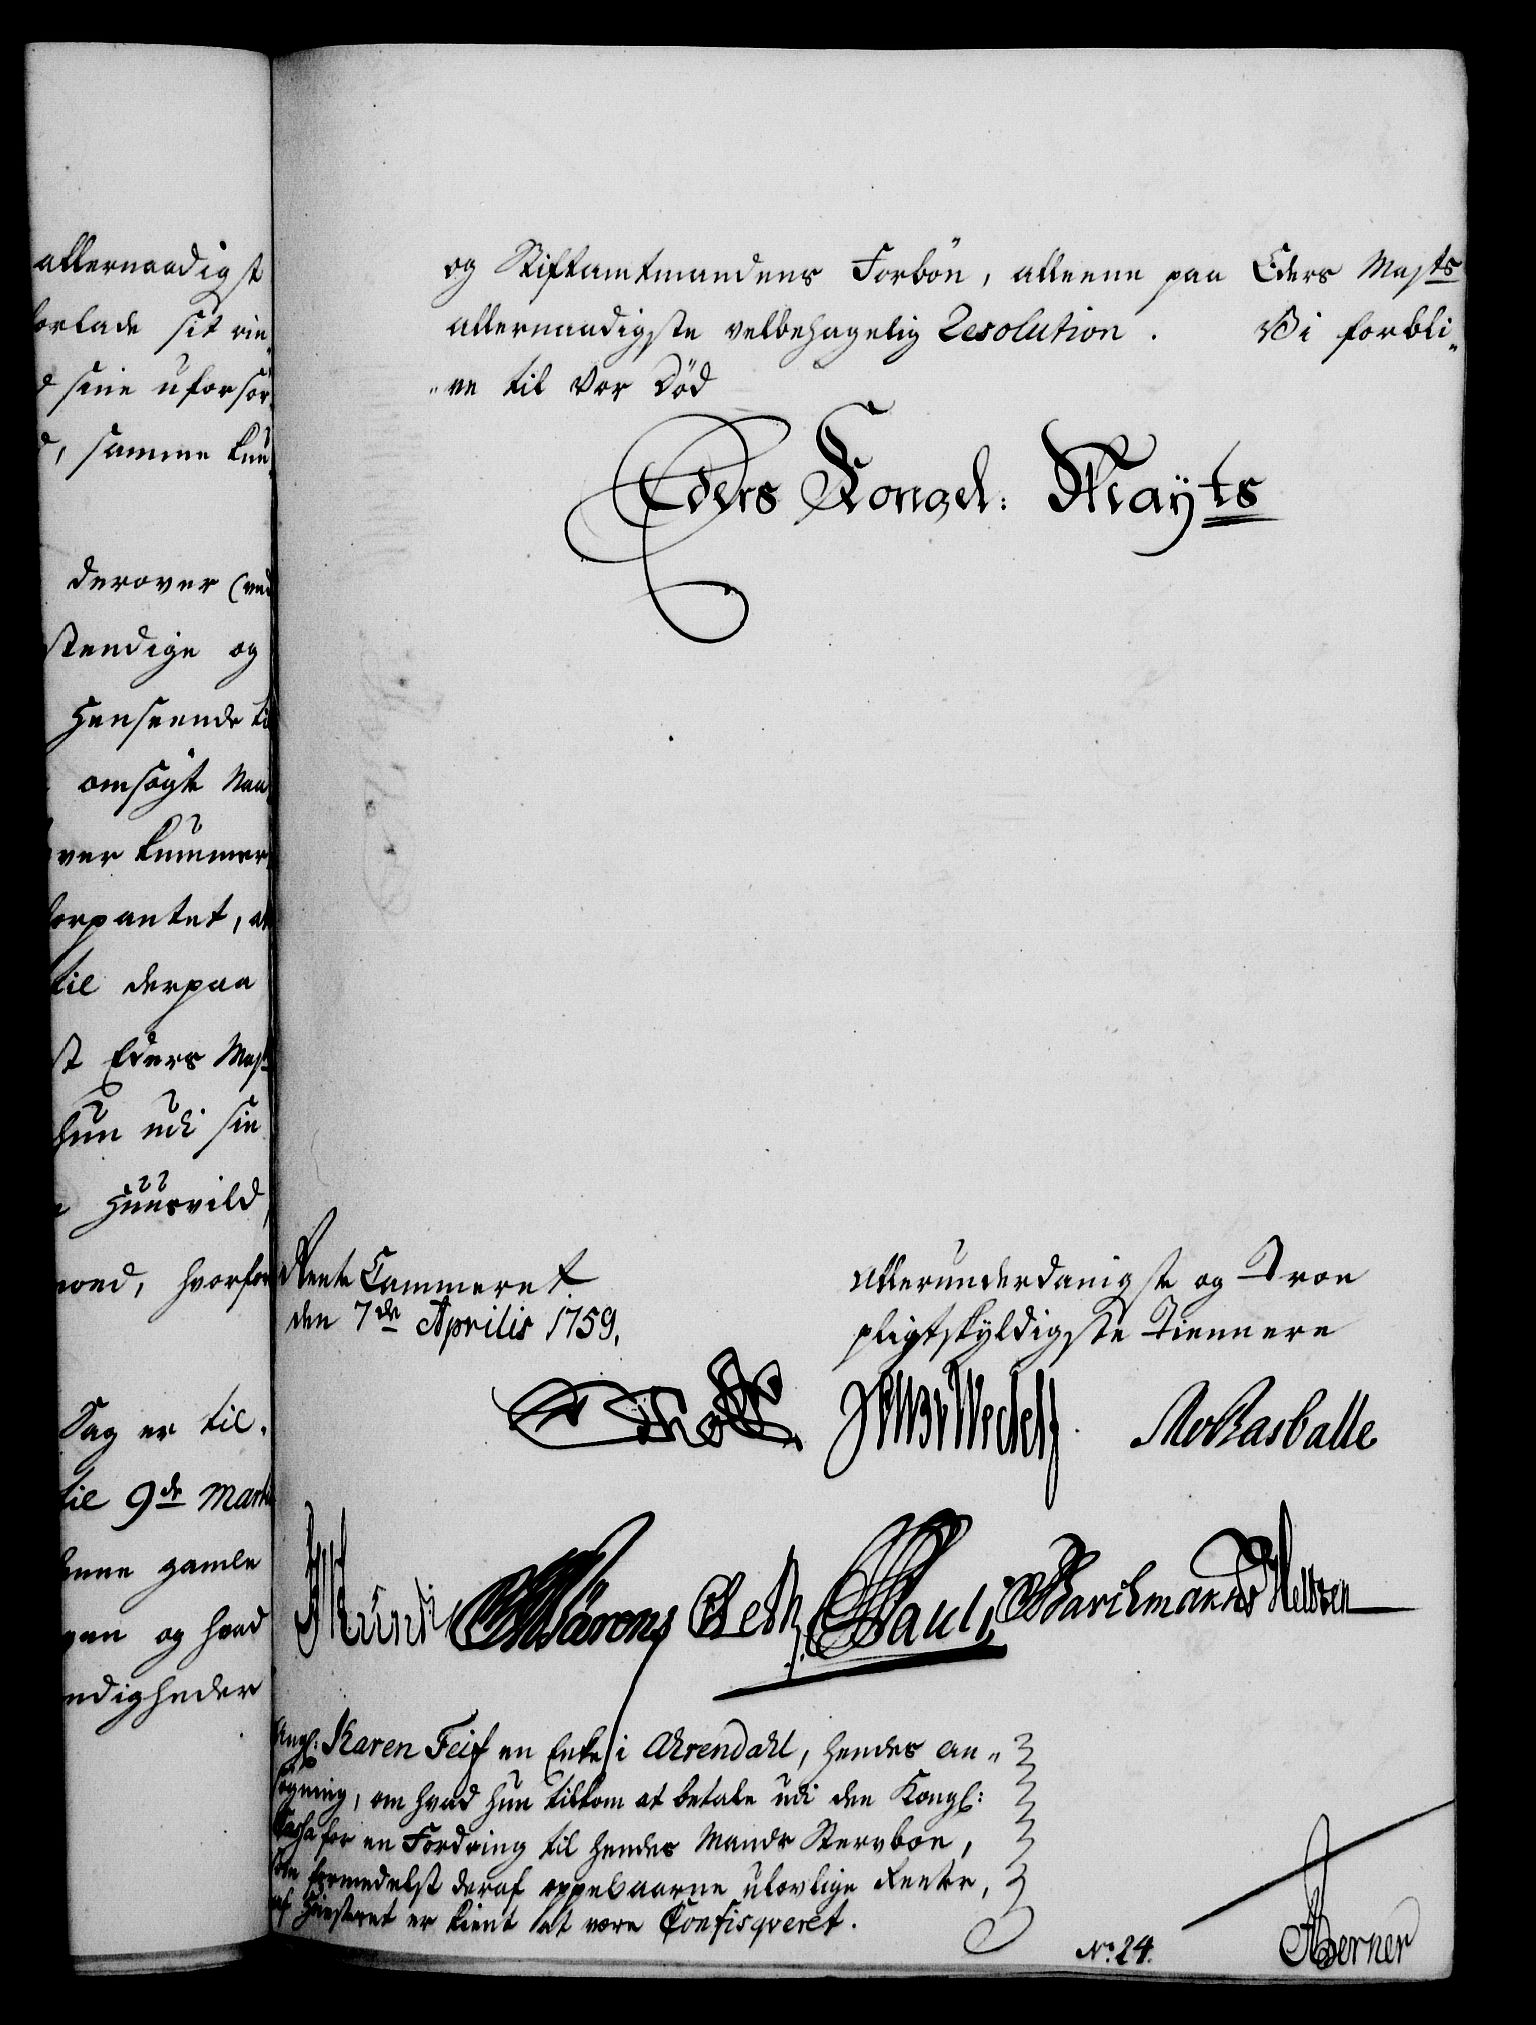 allernaadigst
forlade sit rin„
d sine uforsør„
d, samme kun„
derover (med
stendige og
Henseende til
omsøgte Naa„
over kummer„
forpantet, at
til derpaa
st Eders Mayts
hun udi sin
Huusvild,
noed, hvorfor
Sag er til„
til 9de Martii
denne gamle
gen og hvad
ndigheder
og Stiftamtmandens Forbøn, alleene paa Eders Mayts
allernaadigste velbehagelig Resolution. Vi forbli„
„ve til Vor Død
Eders Kongel: Mayts
Rente Cammeret
den 7de Aprilis 1759.
Allerunderdanigste og Troe
pligtskyldigste Tiennere
Holst Wedels Rasballe
Kundi Bärens Beth Pauli Barchmann Weltzen
Angl: Karen Feif en Enke i Ahrendahl, hendes an„
søgning, om hvad hun tilkom at betale udi den Kongl:
Cassa for en Fordring til hendes Mands Stervboe,
som formedelst deraf oppebaarne ulovlige Rente,
af Høiesteret er kient at være Confisqveret.
No. 24.
Berner